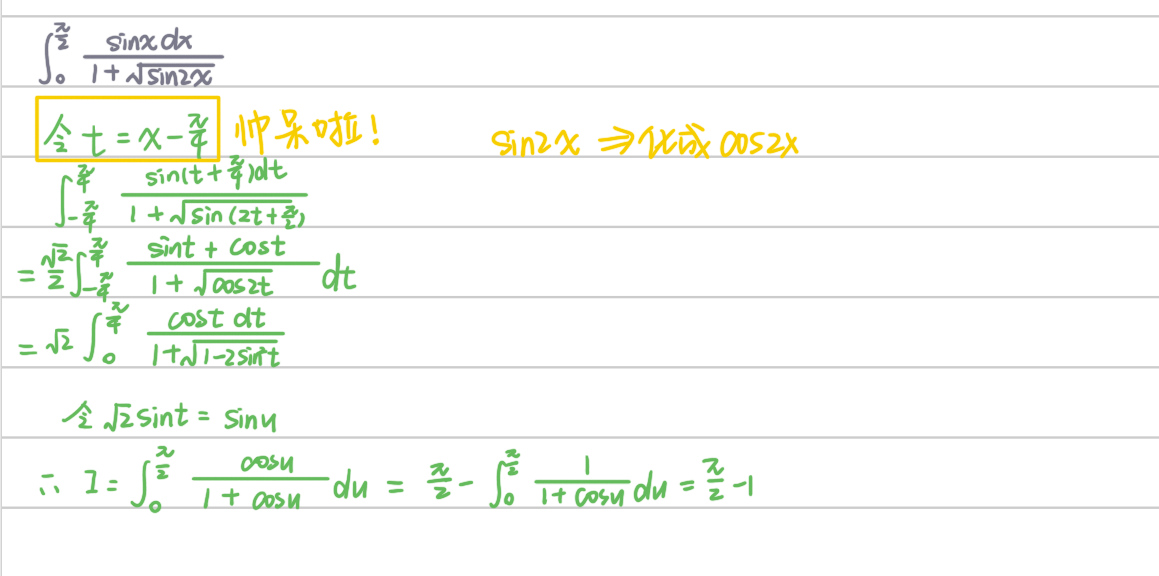 ∫₀^{π/2} sinx dx / (1 + √sin2x)
令 t = x - π/4 帅呆啦! sin2x ⇒ 化成 cos2x
∫_{-π/4}^{π/4} sin(t + π/4)dt / (1 + √sin(2t + π/2))
= √2/2 ∫_{-π/4}^{π/4} (sint + cost) / (1 + √cos2t) dt
= √2 ∫₀^{π/4} cost dt / (1 + √1-2sin²t)
令 √2 sint = sinu
∴ I = ∫₀^{π/2} cosu / (1 + cosu) du = π/2 - ∫₀^{π/2} 1 / (1 + cosu) du = π/2 - 1